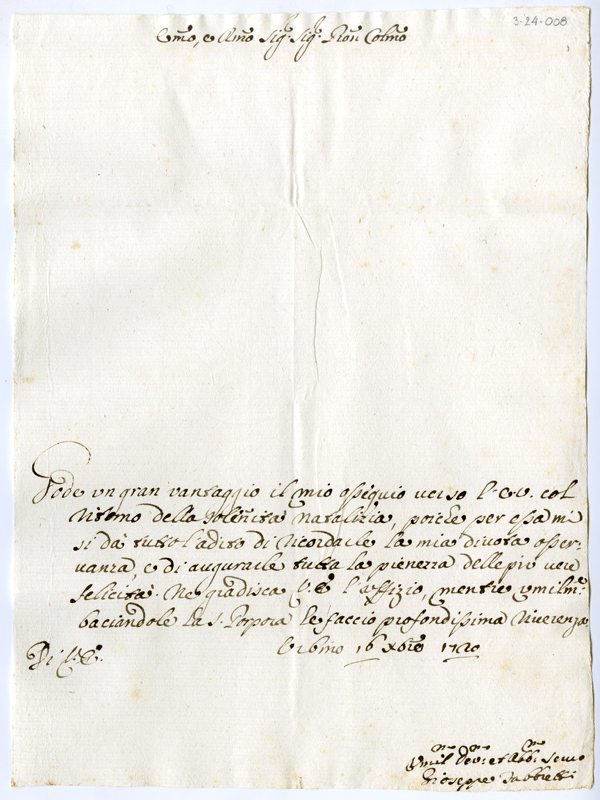 3-24-008
Emõ, e Rmõ Sig.r Sig.r Pron Colmõ
Gode un gran vantaggio il mio ossequio verso l'E.V. col
ritorno della solennità natalizia, poiche per essa mi
si dà tutto l'adito di ricordarle la mia divota osser-
vanza, e di augurarle tutta la pienezza delle più vere
felicità. Ne gradisca V.E. l'uffizio, mentre umilm.e
baciandole la S. Porpora le faccio profondissima riverenza
Di V.E. Urbino 16 Xbre 1720
Umil.mo Dev.mo et Obb.mo Servo
Gioseppe